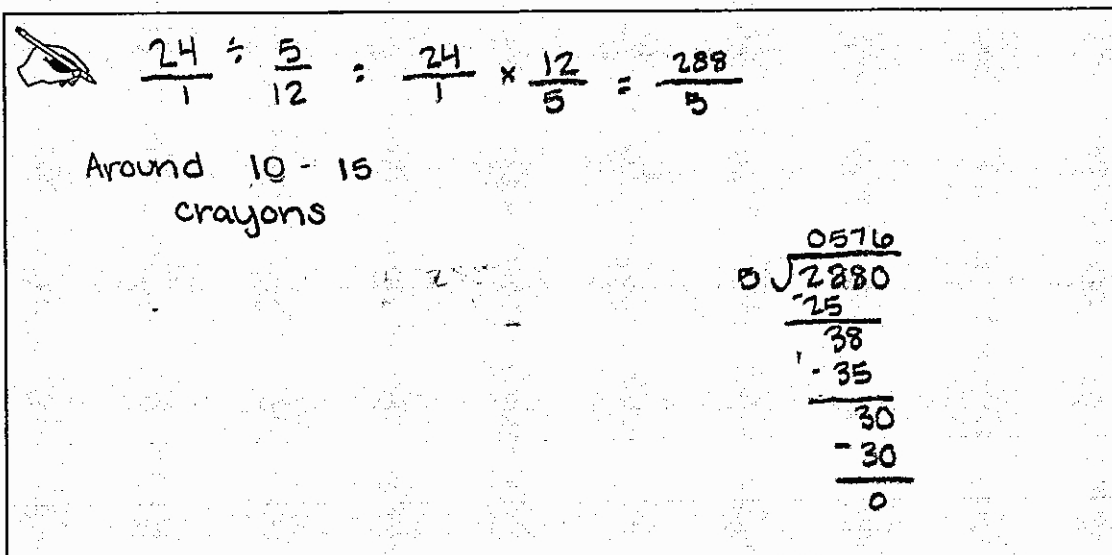 24/1 ÷ 5/12 = 24/1 × 12/5 = 288/5
Around 10 - 15
crayons
0576
5 √2880
-25
38
- 35
30
- 30
0